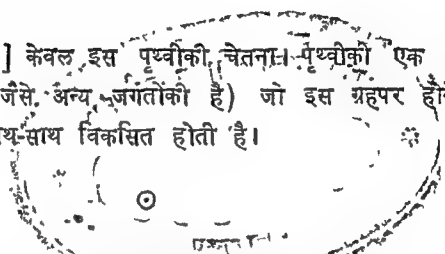 ] केवल इस पृथ्वीकी चेतना। पृथ्वीकी एक
जैसे अन्य जगतोंकी है) जो इस ग्रहपर
साथ विकसित होती है।